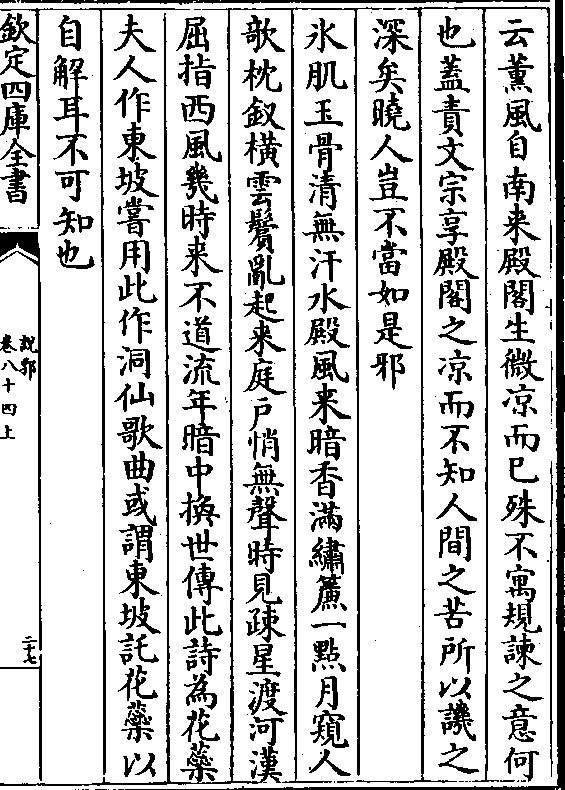 云薫風自南来殿閣生微凉而已殊不寓規諫之意何
也蓋責文宗享殿閣之凉而不知人間之苦所以譏之
深矣曉人豈不當如是邪
氷肌玉骨清無汗水殿風来暗香滿繡簾一點月窺人
欹枕釵橫雲鬢亂起来庭戶悄無聲時見疎星渡河漢
屈指西風幾時来不道流年暗中換世傳此詩為花蘂
夫人作東坡嘗用此作洞仙歌曲或謂東坡託花蘂以
自解耳不可知也
欽定四庫全書
說郛
卷八十四上
二十七